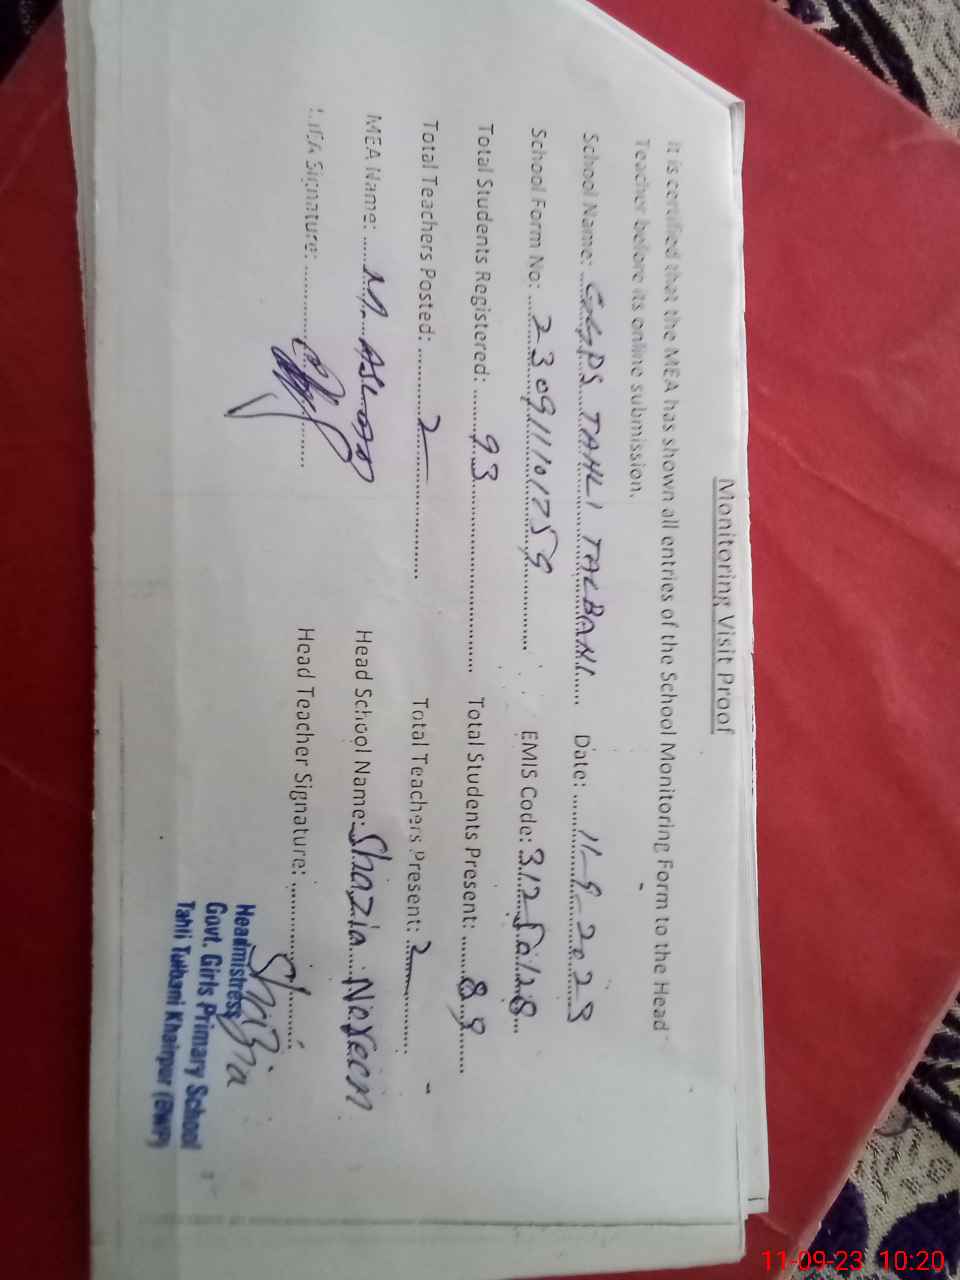 Monitoring Visit Proof
It is certified that the MEA has shown all entries of the School Monitoring Form to the Head
Teacher before its online submission.
School Name: GGPS TAHLI TALBANI Date: 11-9-2023
School Form No: 230911101759 EMIS Code: 31250128
Total Students Registered: 93 Total Students Present: 89
Total Teachers Posted: 2 Total Teachers Present: 2
MEA Name: M. ASLAM Head School Name: Shazia Naseem
MEA Signature: Head Teacher Signature: Shazia
Headmistress
Govt. Girls Primary School
Tahli Tulbani Khairpur (BWP)
11-09-23 10:20